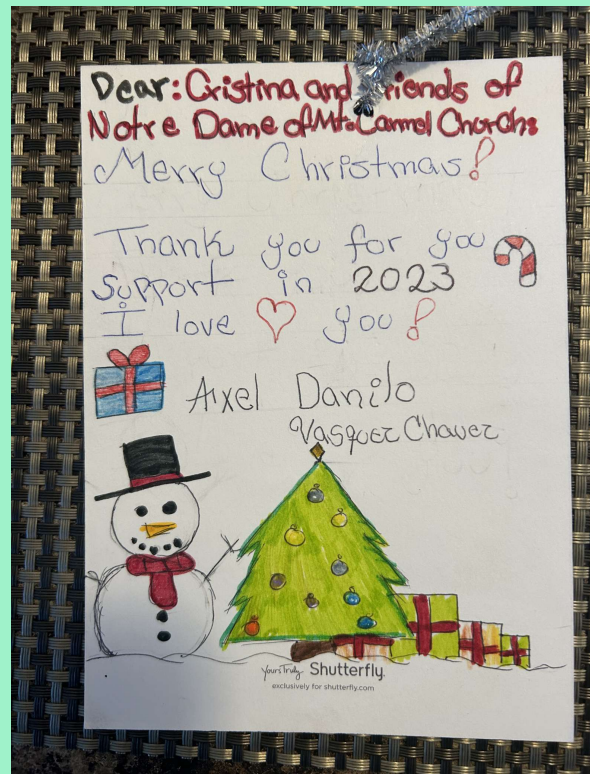 Dear: Cristina and friends of
Notre Dame of Mt. Carmel Church:
Merry Christmas!
Thank you for you
support in 2023
I love you!
Axel Danilo
Vasquez Chavez
Yours Truly Shutterfly.
exclusively for shutterfly.com